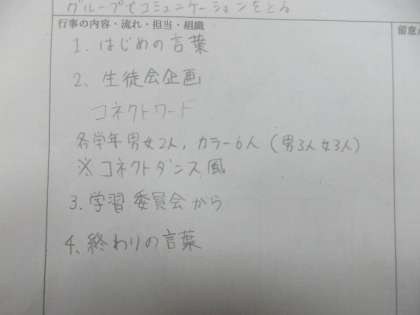 グループでコミュニケーションをとる
行事の内容・流れ・担当・組織
留意
1. はじめの言葉
2. 生徒会企画
コネクトワード
各学年男女2人, カラー6人(男3人女3人)
※コネクトダンス風
3. 学習委員会から
4. 終わりの言葉